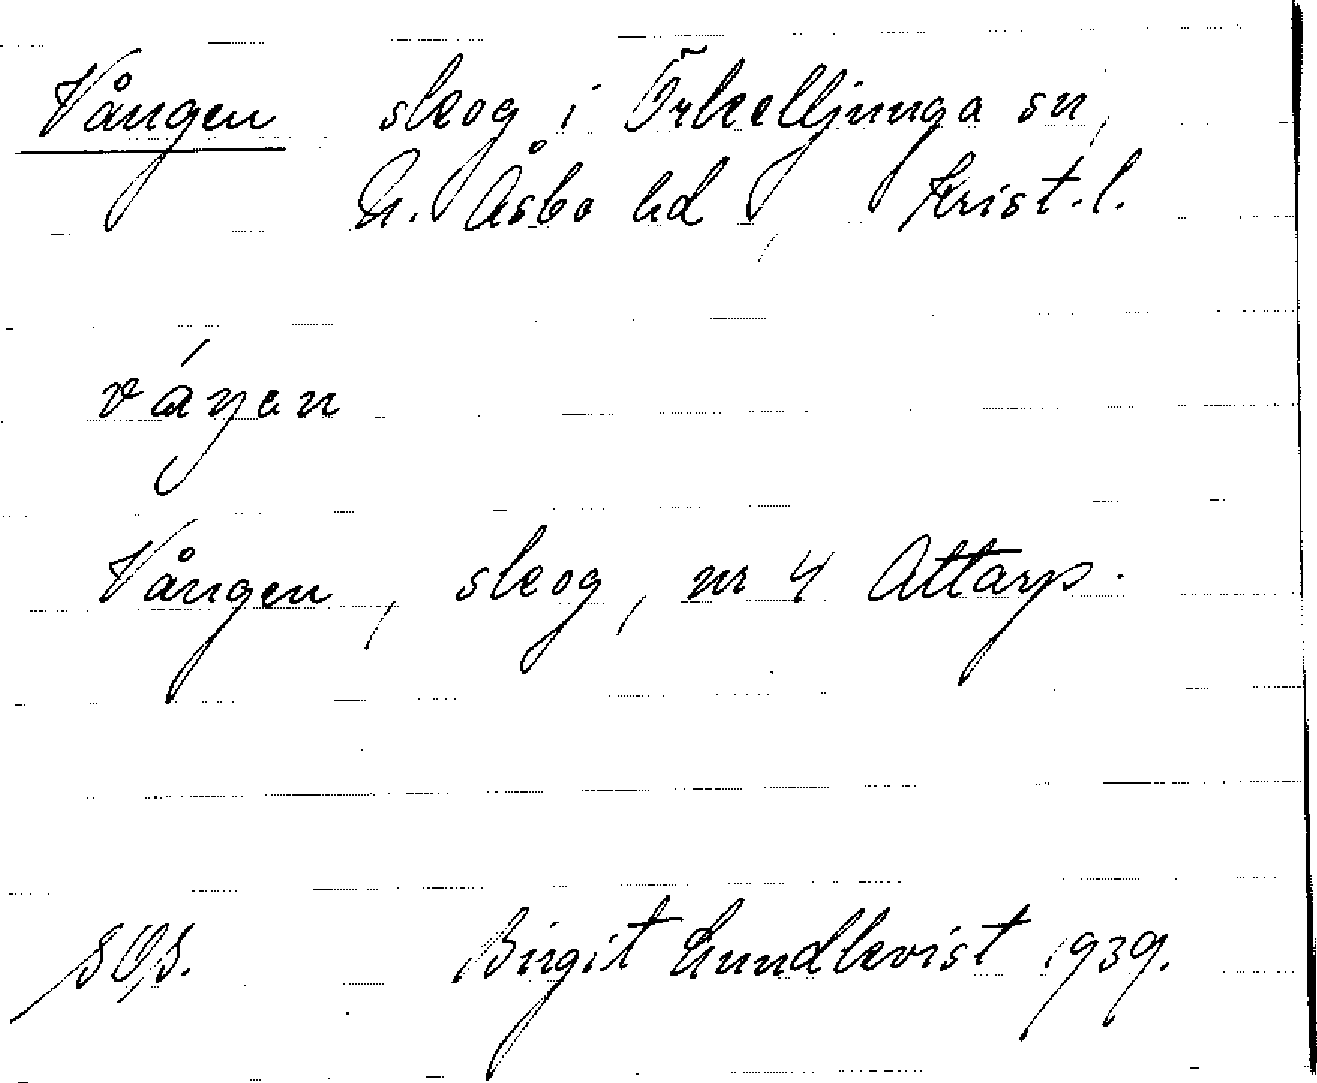 Vången skog i Örkelljunga sn,
N. Åsbo hd, Krist. l.
váŋen
Vången, skog, nr 4 Attarp.
Birgit Lundkvist 1939.